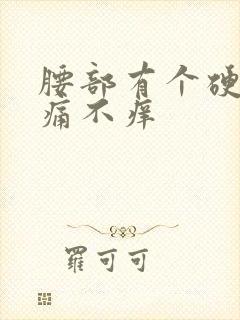 腰部有个硬
痛不痒
羅可可